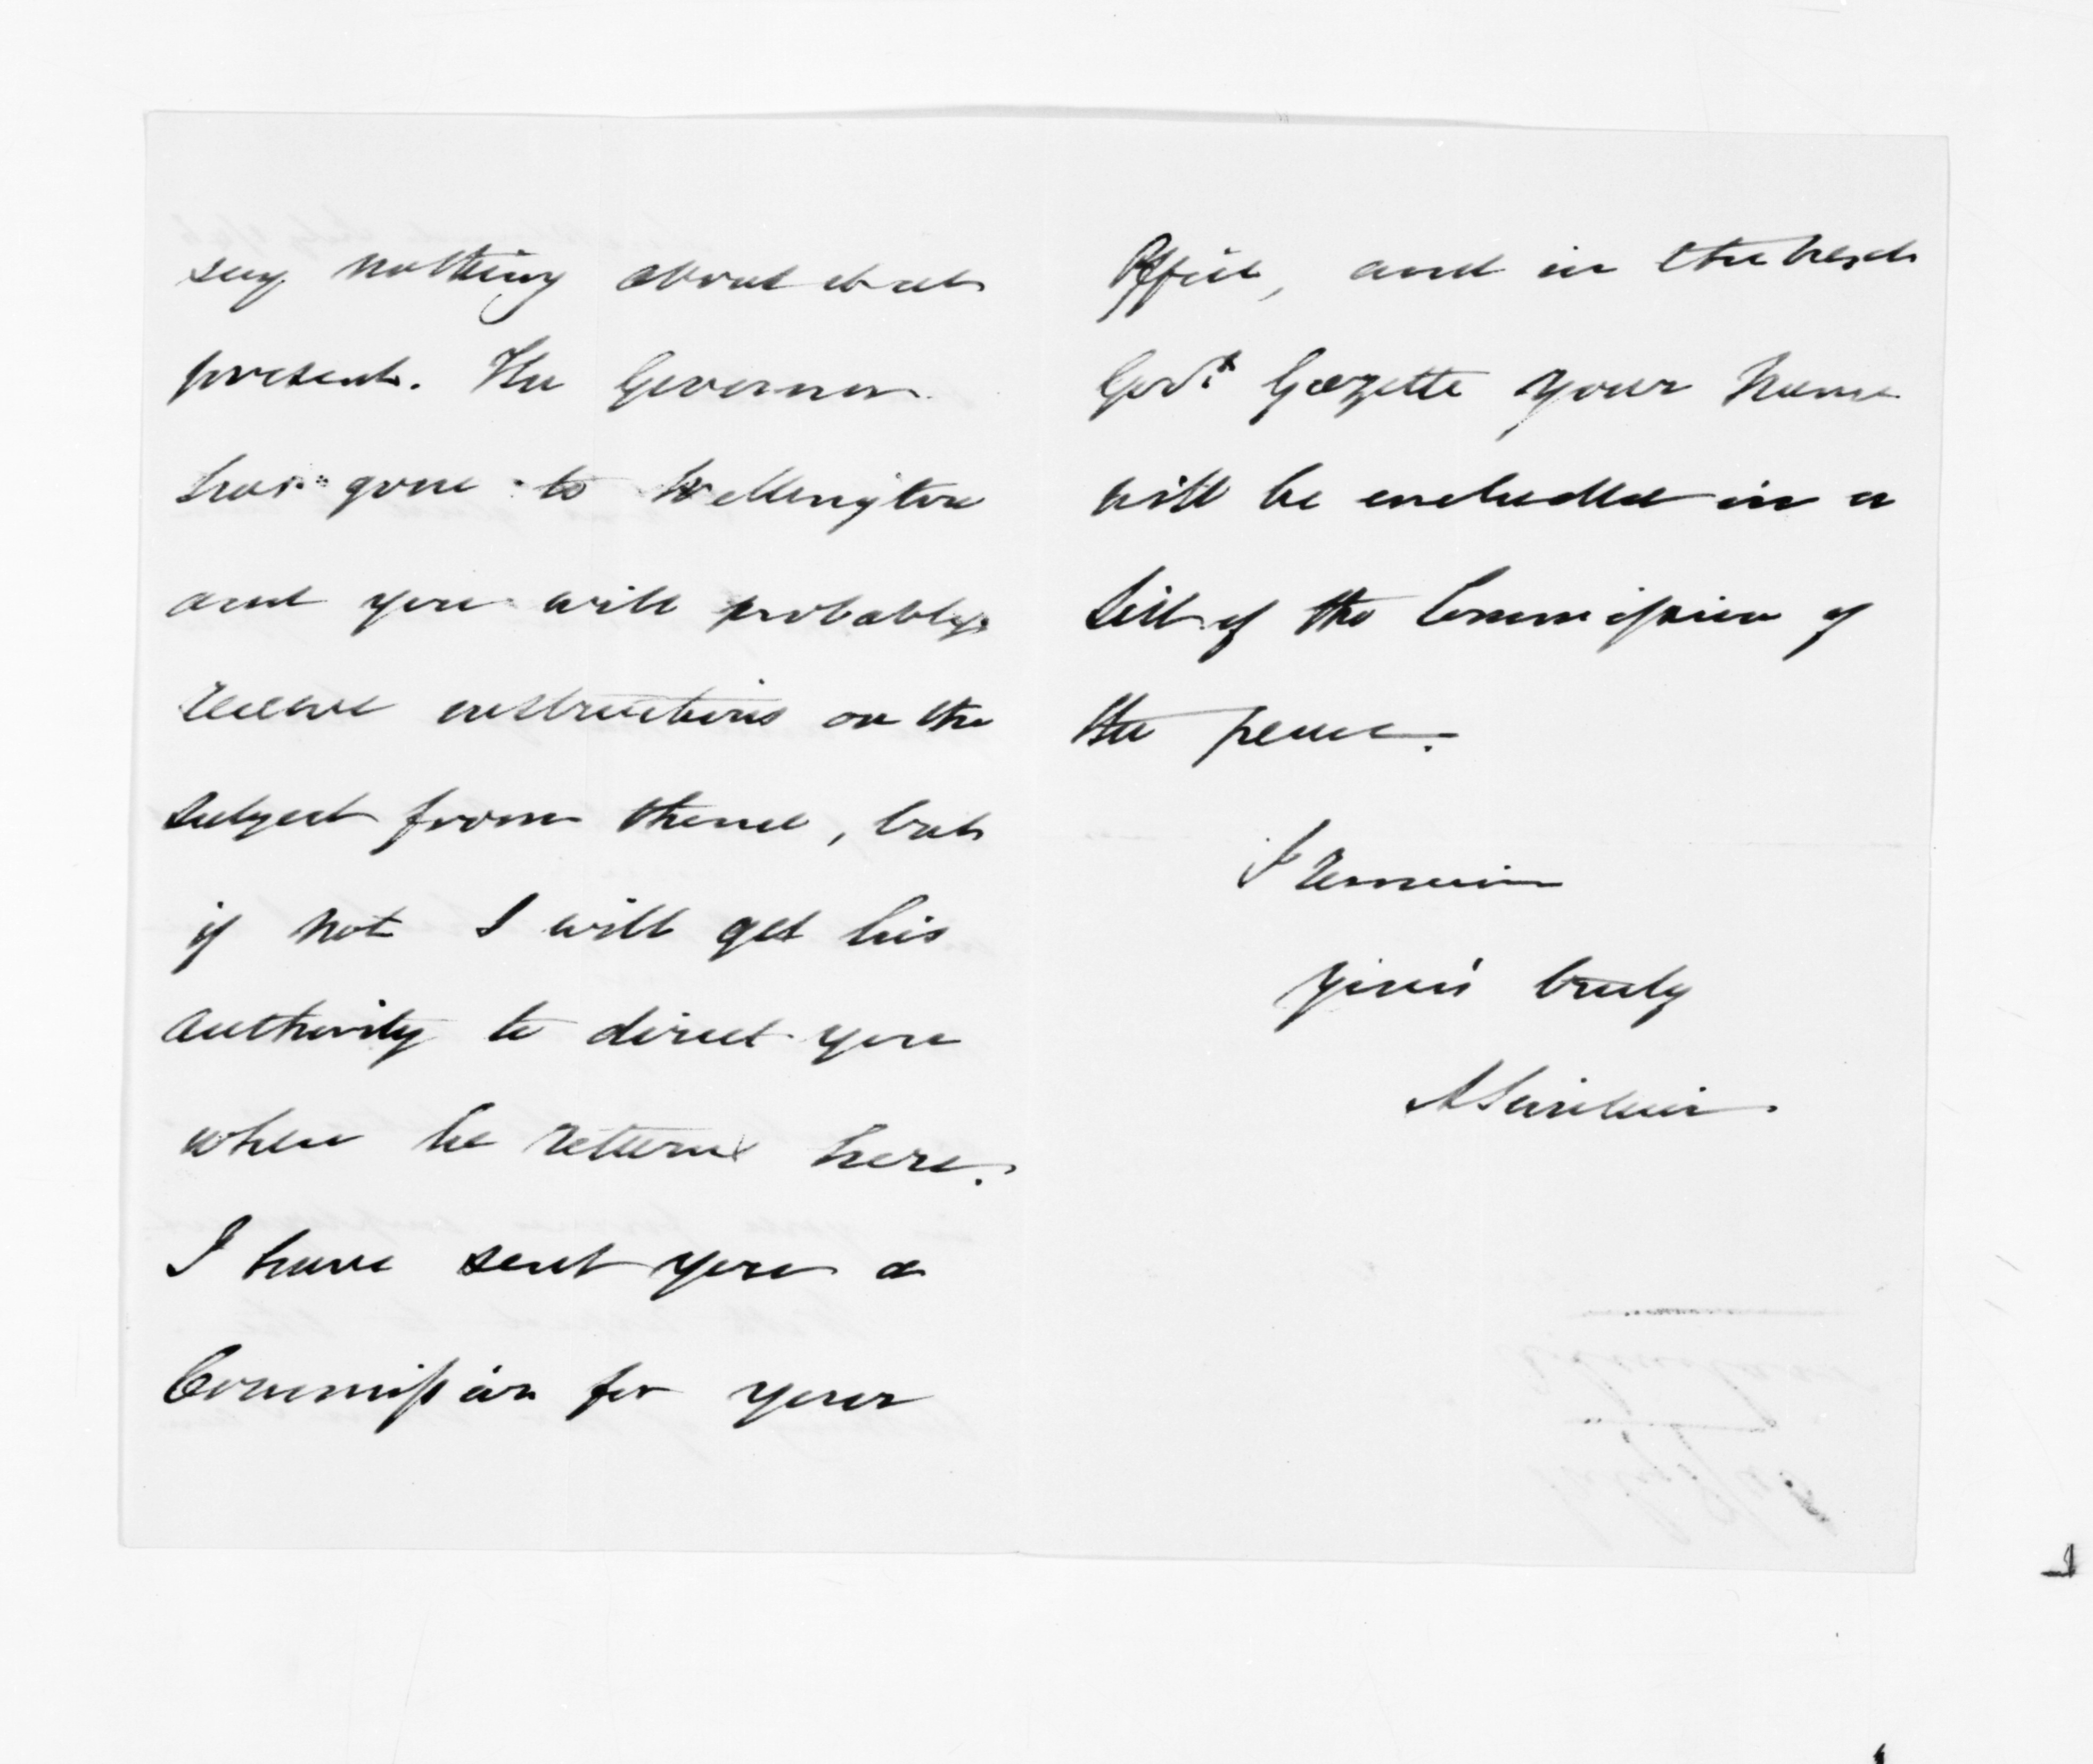 say nothing about it at
present. The Governor
has gone to Wellington
and you will probably
receive instructions on the
subject from thence, but
if not I will get his
authority to direct you
when he returns here.
I have sent you a
Commission for your
Office, and in the next
Govt. Gazette your name
will be included in a
list of the Commission of
the peace.
I remain
yours truly
A Sinclair